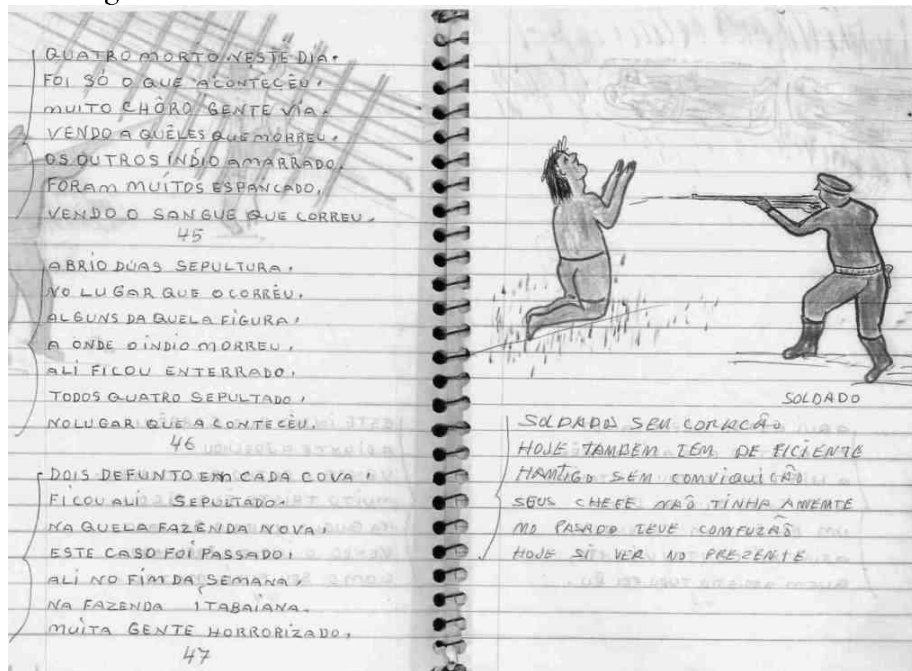 QUATRO MORTO NESTE DIA.
FOI SÓ O QUE ACONTECÊU.
MUITO CHÔRO GENTE VIA.
VENDO A QUÊLES QUE MORREU.
OS OUTROS ÍNDIO AMARRADO.
FORAM MUÍTOS ESPANCADO.
VENDO O SANGUE QUE CORREU.
45
ABRIO DUAS SEPULTURA.
NO LUGAR QUE OCORRÊU.
ALGUNS DA QUELA FIGURA.
A ONDE O ÍNDIO MORREU.
ALÍ FICOU ENTERRADO.
TODOS QUATRO SEPULTADO.
NO LUGAR QUE A CONTECÊU.
46
DOIS DEFUNTO EM CADA COVA.
FICOU ALI SEPULTADO.
NA QUELA FAZENDA NOVA.
ESTE CASO FOI PASSADO.
ALI NO FIM DA SEMANA.
NA FAZENDA ITABAIANA.
MUITA GENTE HORRORIZADO.
47
SOLDADO
SOLDADOS SEU CORACÃO
HOJE TAMBEM TEM DE FICIENTE
SEM
SEUS CHEFE NÃO TINHA
PASADO TEVE
HOJE SI VER NO PREZENTE